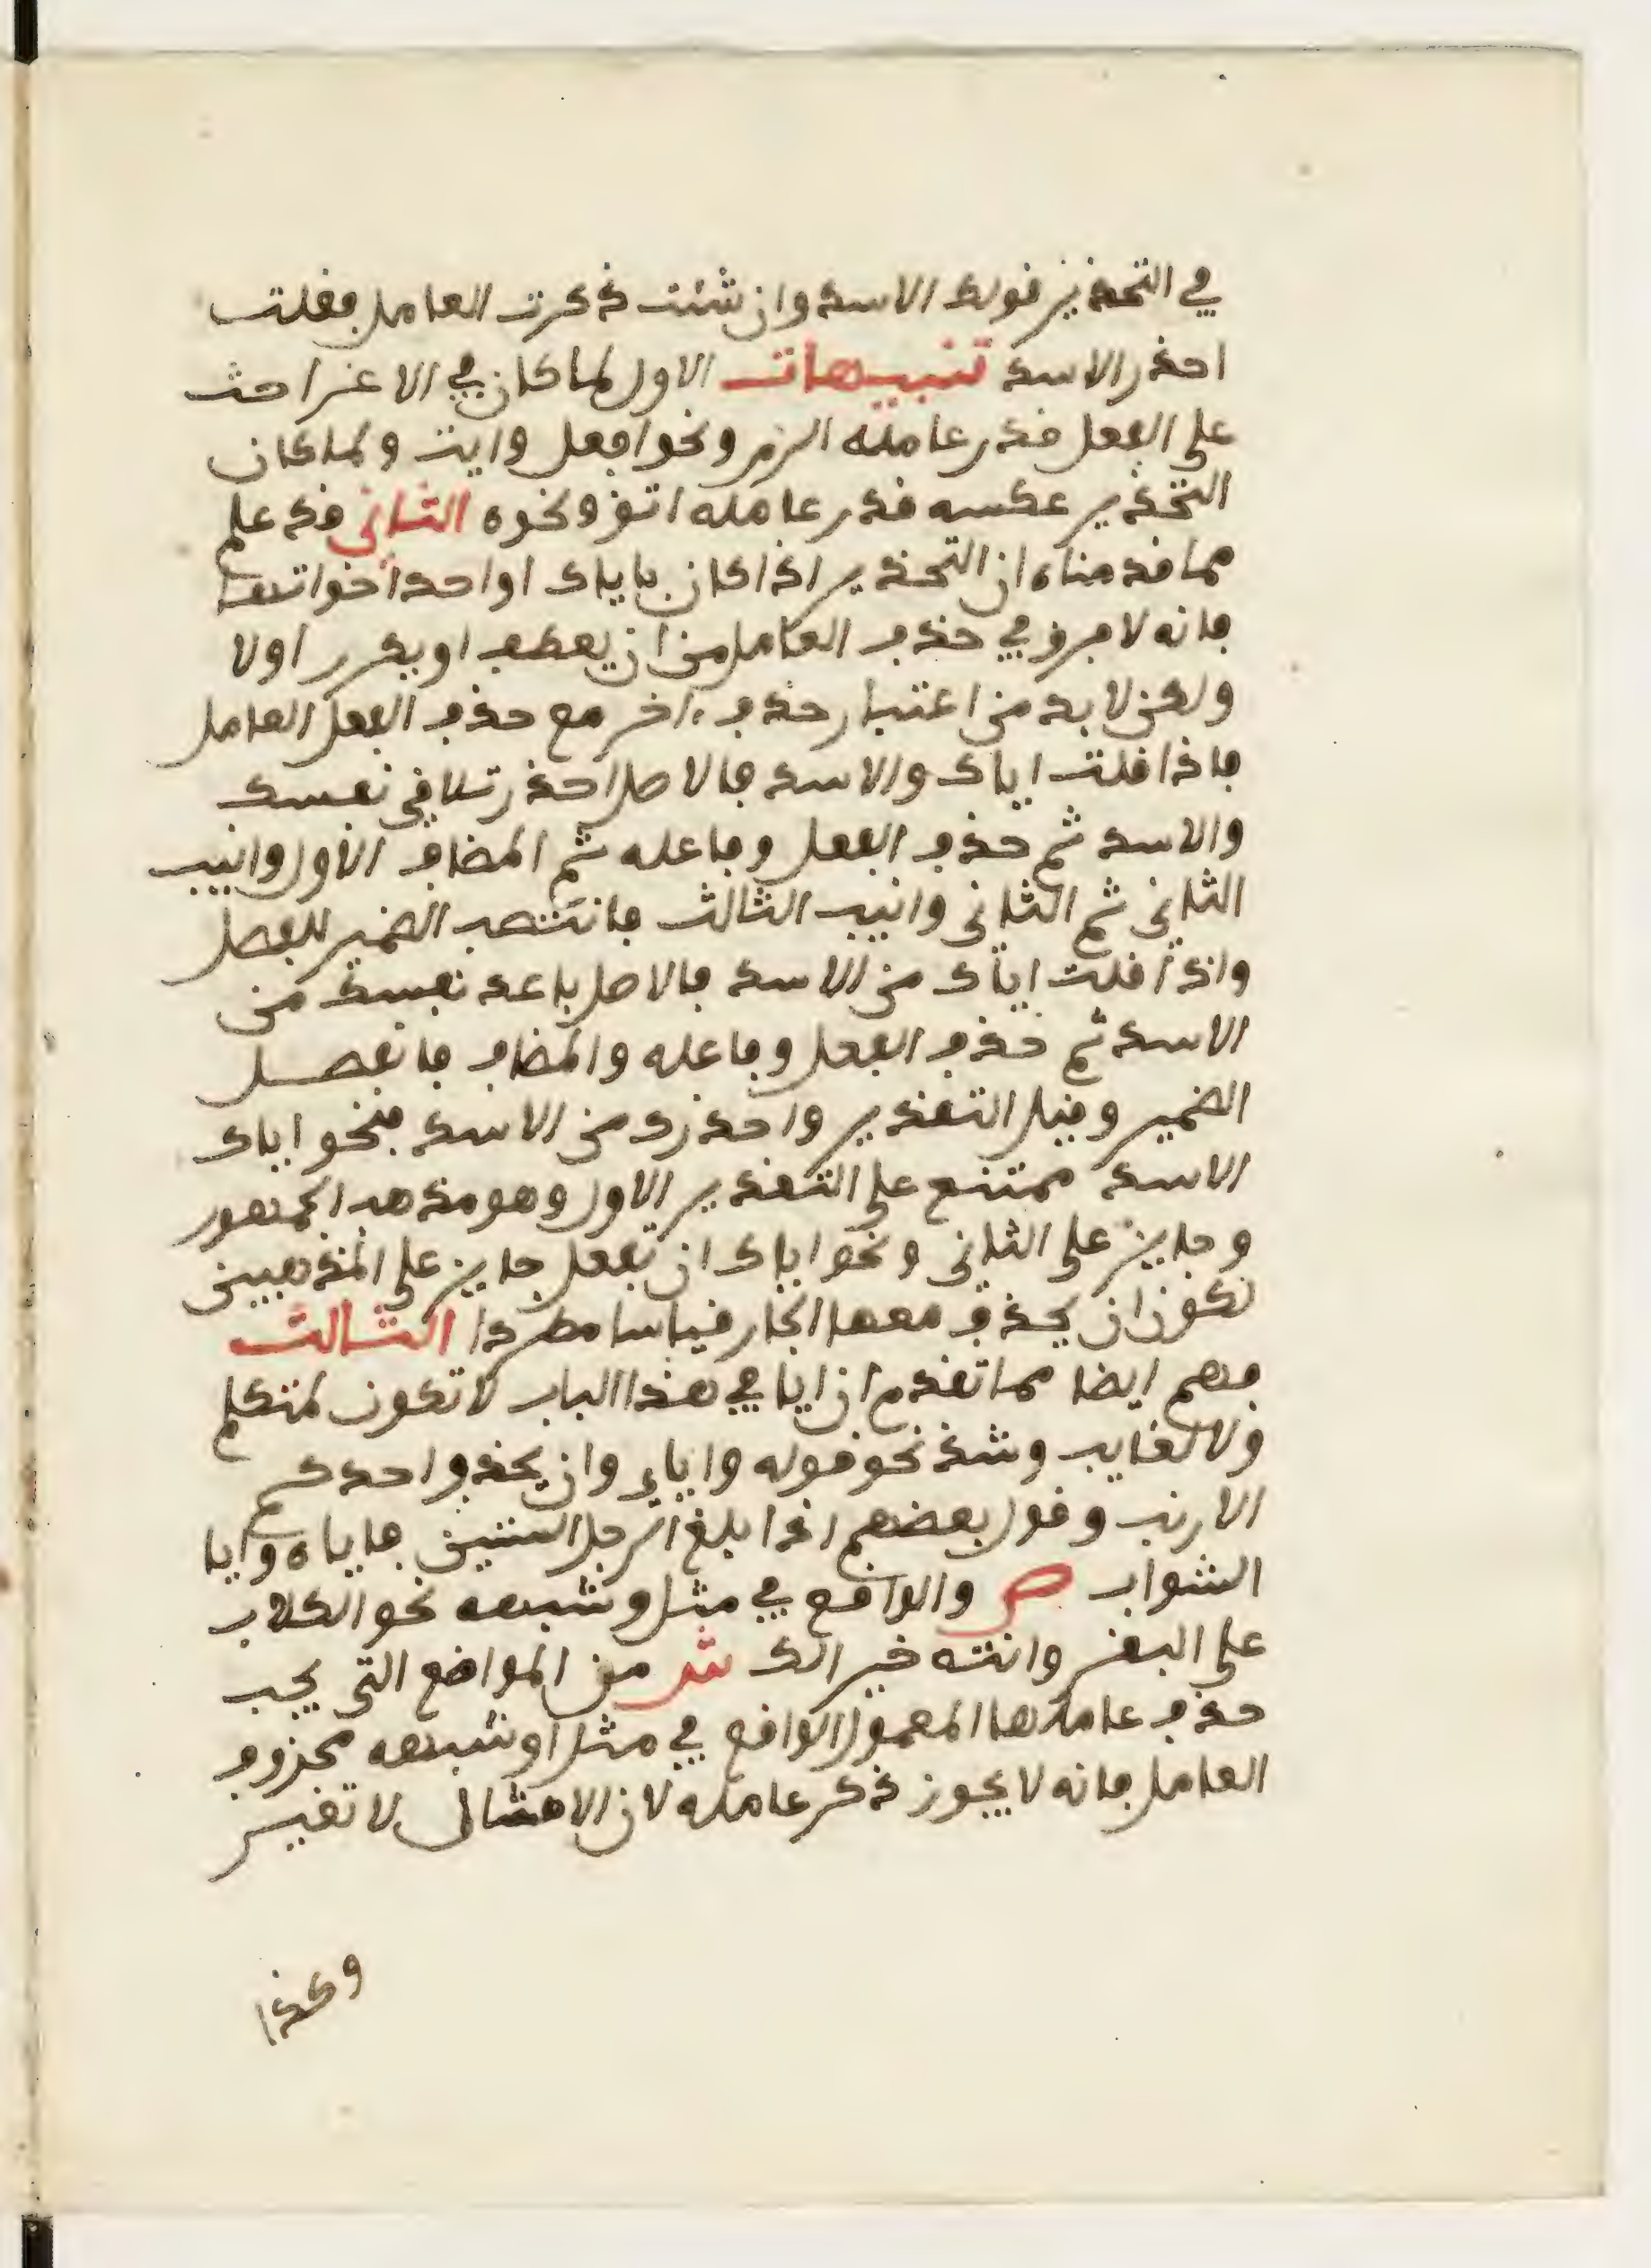 في التحذير قولك الاسد وان شئت ذكرت العامل فقلت
احذر الاسد تنبيهات الاول لما كان في الاغرا حث
على الفعل قدر عامله الزم ونحو افعل وايت ولما كان
التحذير عكسه قدر عامله اتق ونحوه الثاني قد علم
مما قدمناه ان التحذير اذا كان باياك او احد اخواتها
فانه لا فرق في حذف العامل من ان يعطف او يكرر اولا
ولكن لا بد من اعتبار حذف ءاخر مع حذف الفعل العامل
فاذا قلت اياك والاسد فالاصل احذر تلاقي نفسك
والاسد ثم حذف الفعل وفاعله ثم المضاف الاول وانيب
الثاني ثم الثاني وانيب الثالث فانتصب الضمير للفصل
واذا قلت اياك من الاسد فالاصل باعد نفسك من
الاسد ثم حذف الفعل وفاعله والمضاف فانفصل
الضمير وقيل التقدير واحذرك من الاسد فنحو اياك
الاسد ممتنع على التقدير الاول وهو مذهب الجمهور
وجايز على الثاني ونحو اياك ان تفعل جايز على المذهبين
لكون ان يحذف معها الجار قياسا مطردا الثالث
فهم ايضا مما تقدم ان ايا في هذا الباب لا تكون لمتكلم
ولا لغايب وشذ نحو قوله واياي وان يحذف احدكم
الارنب وقول بعضهم اذا بلغ الرجل الستين فاياه وايا
الشواب ص والواقع في مثل وشبهه نحو الكلاب
على البقر وانته خيرا لك ش من المواضع التي يجب
حذف عاملها المعمول الواقع في مثل او شبهه محذوف
العامل فانه لا يجوز ذكر عامله لان الامثال لا تغير
وكذا